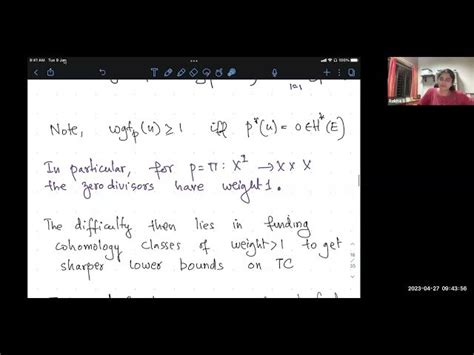 9:41 AM Tue 9 Jan
Note, wgt_p(u) ≥ 1 iff p*(u) = 0 ∈ H*(E)
In particular, for p = π : X^I → X × X
the zero divisors have weight 1.
The difficulty then lies in finding
cohomology classes of weight > 1 to get
sharper lower bounds on TC
2023-04-27 09:43:56